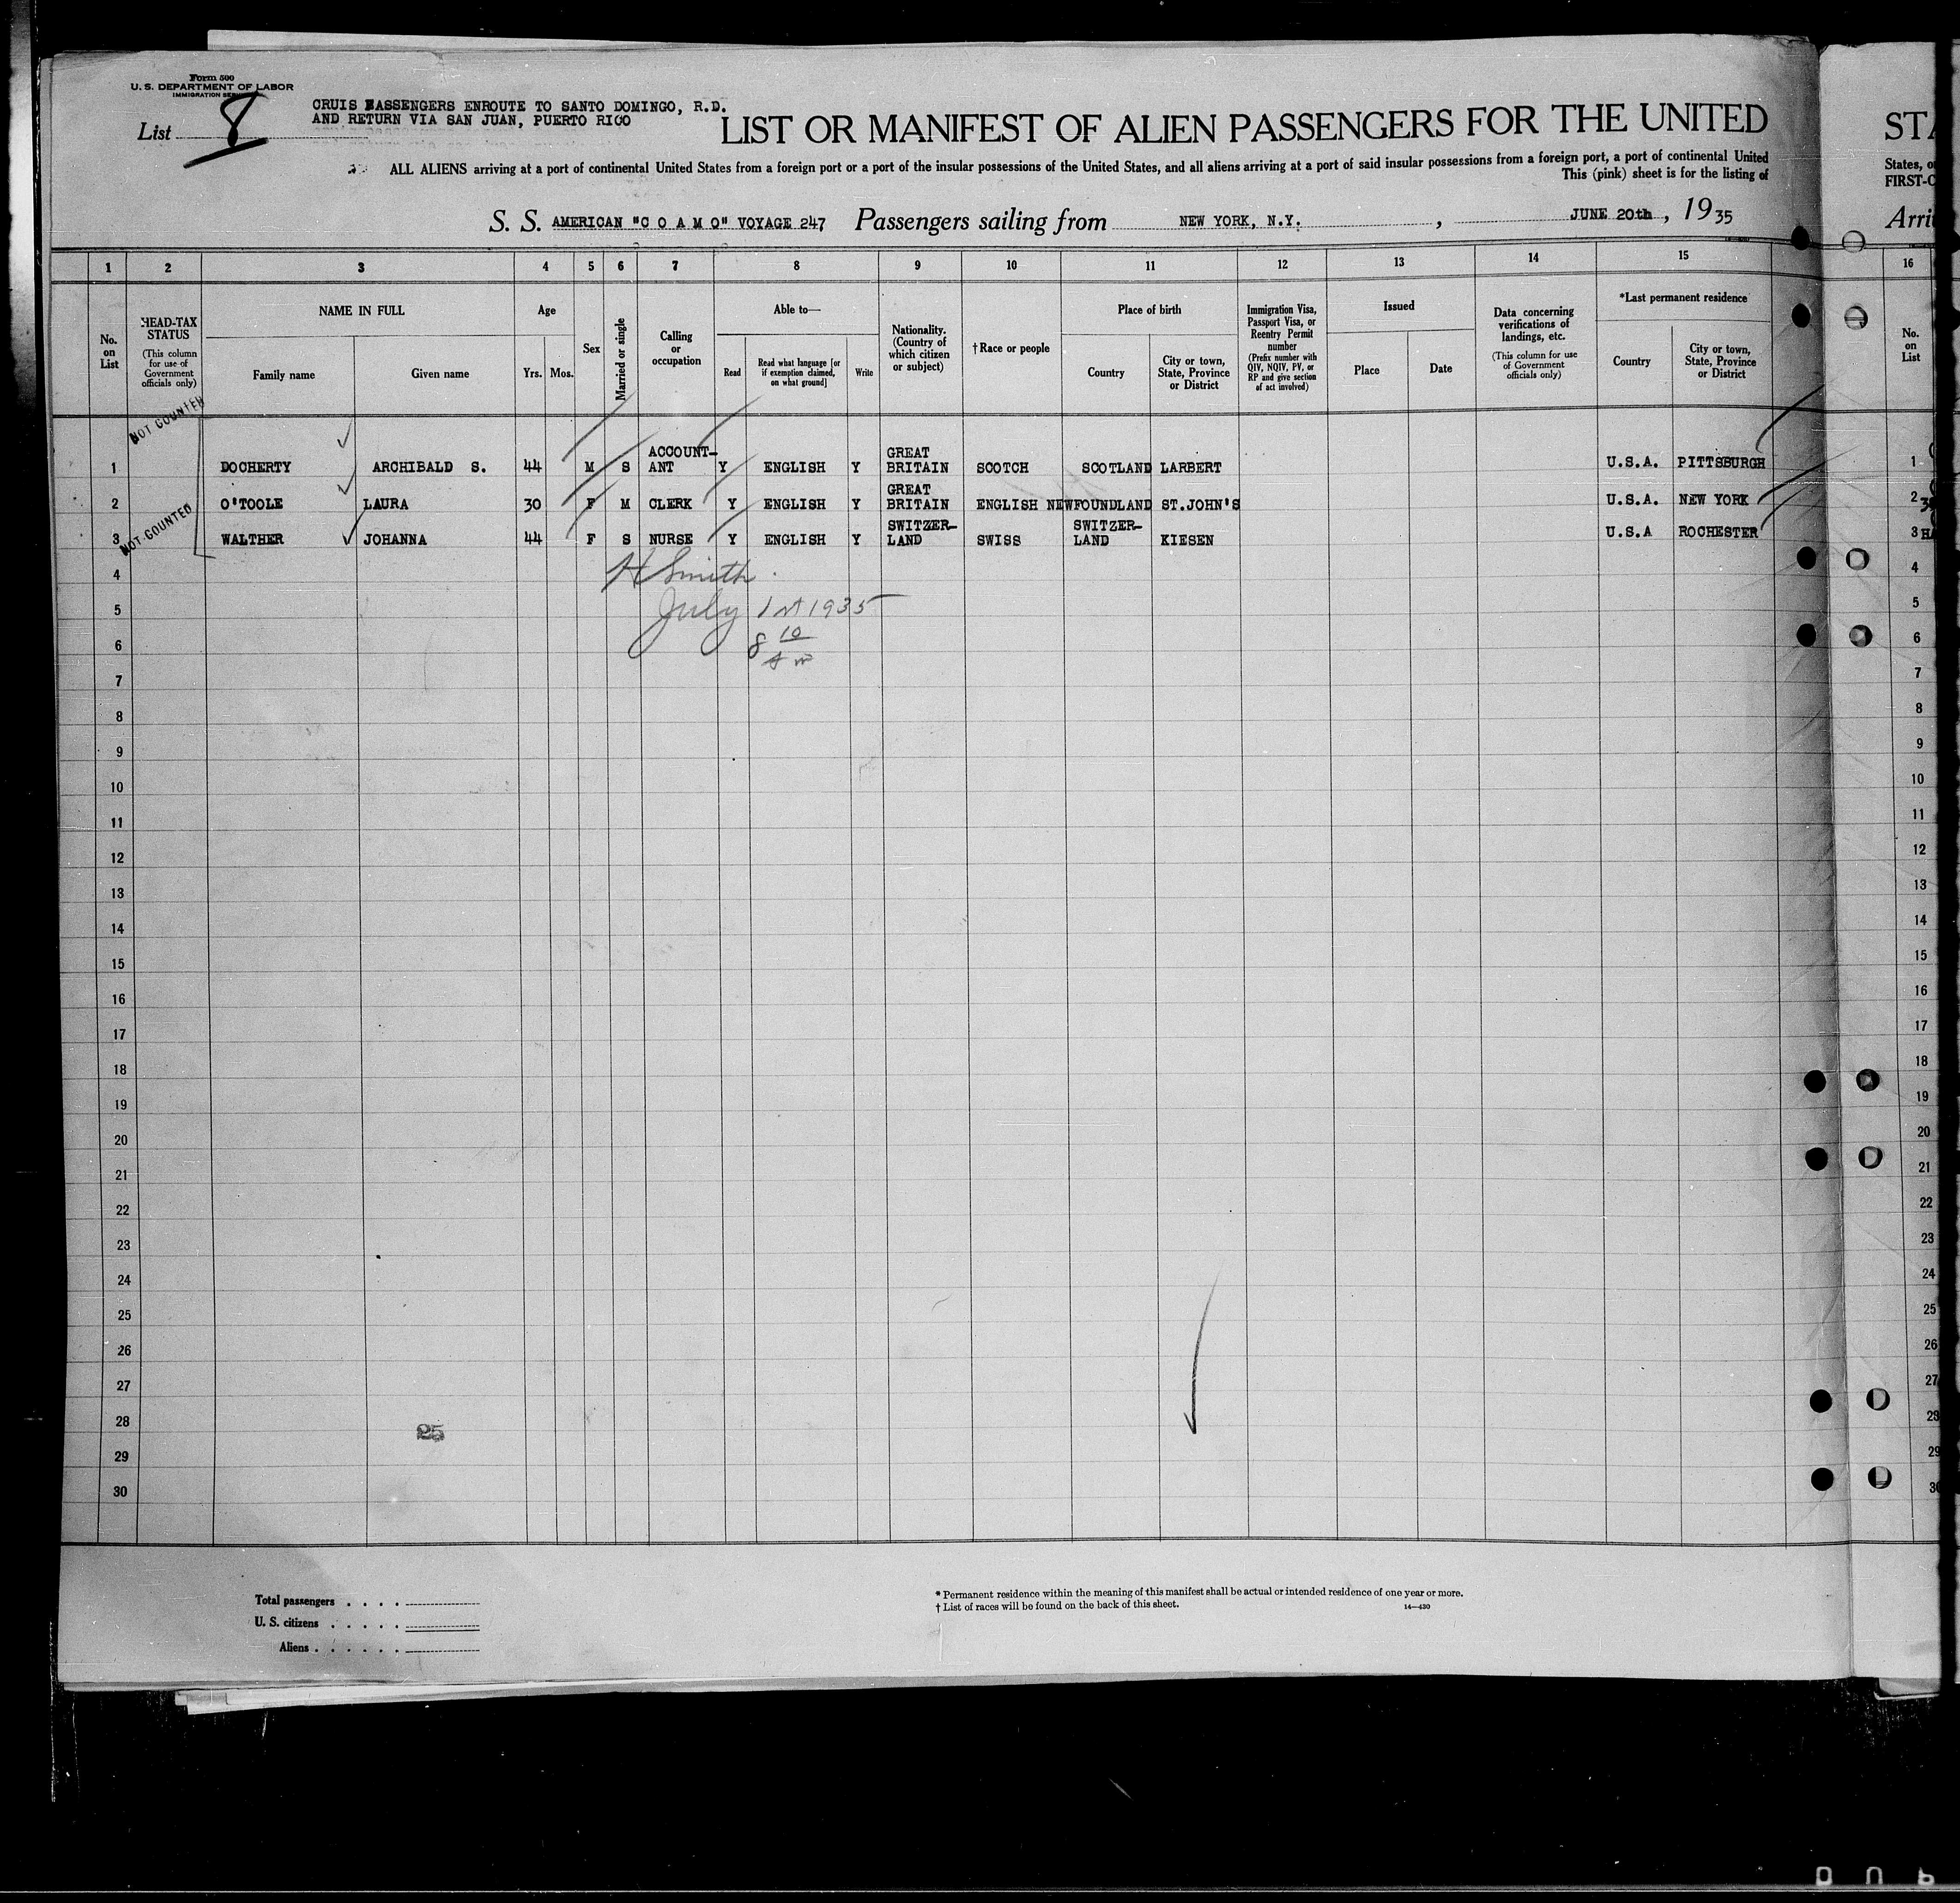 Form 500
U. S. DEPARTMENT OF LABOR
IMMIGRATION SERVICE
List 8
CRUIS PASSENGERS ENROUTE TO SANTO DOMINGO, R.D.
AND RETURN VIA SAN JUAN, PUERTO RICO
LIST OR MANIFEST OF ALIEN PASSENGERS FOR THE UNITED
ALL ALIENS arriving at a port of continental United States from a foreign port or a port of the insular possessions of the United States, and all aliens arriving at a port of said insular possessions from a foreign port, a port of continental United
This (pink) sheet is for the listing of
S. S. AMERICAN "C O A M O" VOYAGE 247 Passengers sailing from NEW YORK, N.Y. , JUNE 20th , 1935
1 2 3 4 5 6 7 8 9 10 11 12 13 14 15
No. on List
HEAD-TAX STATUS
(This column for use of Government officials only)
NAME IN FULL
Family name
Given name
Age
Yrs. Mos.
Sex
Married or single
Calling or occupation
Able to—
Read
Read what language [or if exemption claimed, on what ground]
Write
Nationality. (Country of which citizen or subject)
†Race or people
Place of birth
Country
City or town, State, Province or District
Immigration Visa, Passport Visa, or Reentry Permit number
(Prefix number with QIV, NQIV, PV, or RP and give section of act involved)
Issued
Place
Date
Data concerning verifications of landings, etc.
(This column for use of Government officials only)
*Last permanent residence
Country
City or town, State, Province or District
NOT COUNTED
1 DOCHERTY ARCHIBALD S. 44 M S ACCOUNT-ANT Y ENGLISH Y GREAT BRITAIN SCOTCH SCOTLAND LARBERT U.S.A. PITTSBURGH
2 O'TOOLE LAURA 30 F M CLERK Y ENGLISH Y GREAT BRITAIN ENGLISH NEWFOUNDLAND ST.JOHN'S U.S.A. NEW YORK
NOT COUNTED
3 WALTHER JOHANNA 44 F S NURSE Y ENGLISH Y SWITZER-LAND SWISS SWITZER-LAND KIESEN U.S.A ROCHESTER
H Smith
July 1st 1935
8 10
A m
4
5
6
7
8
9
10
11
12
13
14
15
16
17
18
19
20
21
22
23
24
25
26
27
28
29
30
25
Total passengers
U. S. citizens
Aliens
* Permanent residence within the meaning of this manifest shall be actual or intended residence of one year or more.
† List of races will be found on the back of this sheet.
14—430
STA
States, o
FIRST-C
Arri
16
No. on List
1
2
3
4
5
6
7
8
9
10
11
12
13
14
15
16
17
18
19
20
21
22
23
24
25
26
27
28
29
30